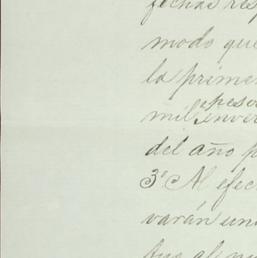 fechas resp
modo que
la prime
pesos
mil inver
del año p
3ª Al efec
varán un